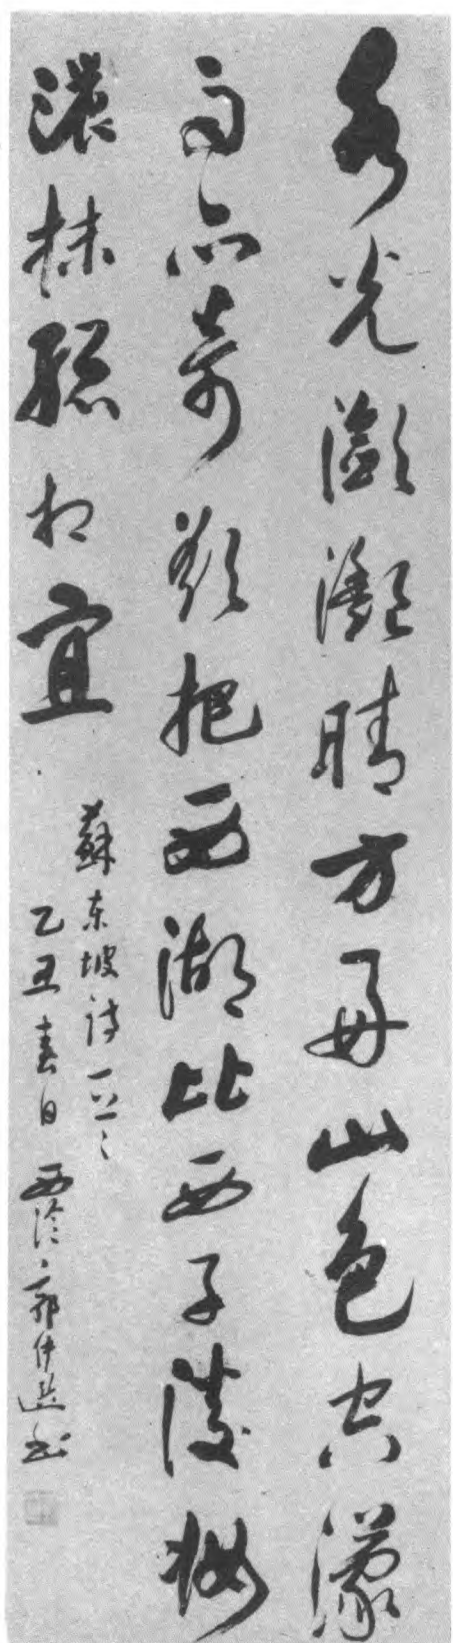 水光瀲灩晴方好山色空濛
雨亦奇欲把西湖比西子淡妝
濃抹總相宜
蘇東坡詩一首
乙丑春日西泠郭仲選書